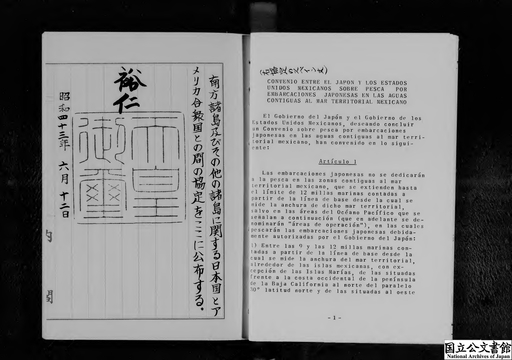 南方諸島及びその他の諸島に関する日本国とア
メリカ合衆国との間の協定をここに公布する。
裕仁
天皇
御璽
昭和四十三年 六月 十二日
CONVENIO ENTRE EL JAPON Y LOS ESTADOS
UNIDOS MEXICANOS SOBRE PESCA POR
EMBARCACIONES JAPONESAS EN LAS AGUAS
CONTIGUAS AL MAR TERRITORIAL MEXICANO
El Gobierno del Japón y el Gobierno de los
Estados Unidos Mexicanos, deseando concluir
un Convenio sobre pesca por embarcaciones
japonesas en las aguas contiguas al mar terri-
torial mexicano, han convenido en lo siguien-
te:
Artículo 1
Las embarcaciones japonesas no se dedicarán
a la pesca en las zonas contiguas al mar
territorial mexicano, que se extienden hasta
el límite de 12 millas marinas contadas a
partir de la línea de base desde la cual se
mide la anchura de dicho mar territorial,
salvo en las áreas del Océano Pacífico que se
señalan a continuación (que en adelante se de-
nominarán "áreas de operación"), en las cuales
pescarán las embarcaciones japonesas debida-
mente autorizadas por el Gobierno del Japón:
1) Entre las 9 y las 12 millas marinas con-
tadas a partir de la línea de base desde la
cual se mide la anchura del mar territorial,
alrededor de las islas mexicanas, con ex-
cepción de las Islas Marías, de las situadas
frente a la costa occidental de la península
de la Baja California al norte del paralelo
30° latitud norte y de las situadas al oeste
- 1 -
国立公文書館
National Archives of Japan